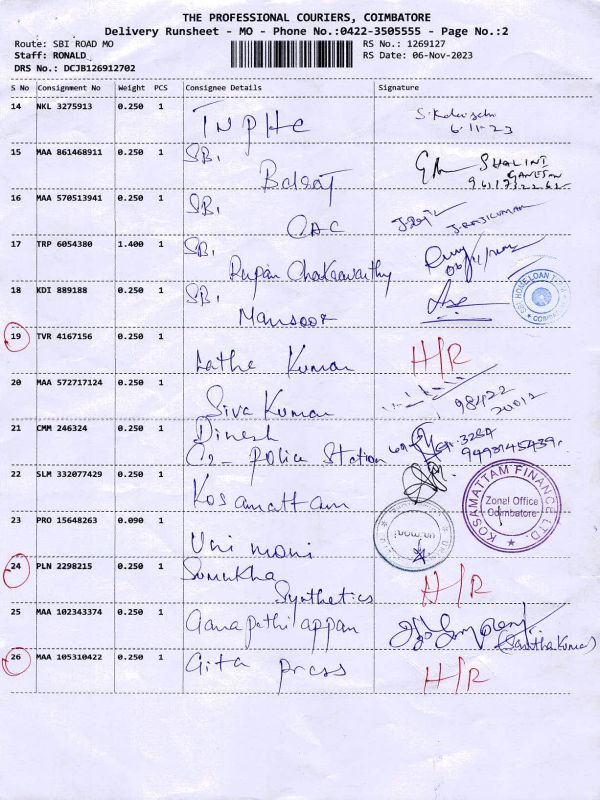 THE PROFESSIONAL COURIERS, COIMBATORE
Delivery Runsheet - MO - Phone No.:0422-3505555 - Page No.:2
Route: SBI ROAD MO RS No.: 1269127
Staff: RONALD RS Date: 06-Nov-2023
DRS No.: DCJB126912702
S No Consignment No Weight PCS Consignee Details Signature
14 NKL 3275913 0.250 1 TNPHC
6.11.23
15 MAA 861468911 0.250 1 SB,
Balaji SHALINI
GANESAN
16 MAA 570513941 0.250 1 SB,
CAC J.RAJKUMAR
17 TRP 6054380 1.400 1 SB,
Rupan Chakaravarthy
18 KDI 889188 0.250 1 SB,
Mansoor
SBI HOME LOAN
19 TVR 4167156 0.250 1
Latha Kumar H/R
20 MAA 572717124 0.250 1
Siva Kumar 98422
20012
21 CMM 246324 0.250 1 Dinesh
C2 Police Station 9498145439
22 SLM 332077429 0.250 1 Kosamattam
KOSAMATTAM FINANCE LTD.
Zonal Office
Coimbatore
23 PRO 15648263 0.090 1
Uni moni
un.moni
24 PLN 2298215 0.250 1 Sumukha
Synthetics H/R
25 MAA 102343374 0.250 1 Ganapathi appan
(Savithakumar)
26 MAA 105310422 0.250 1 Gita press H/R